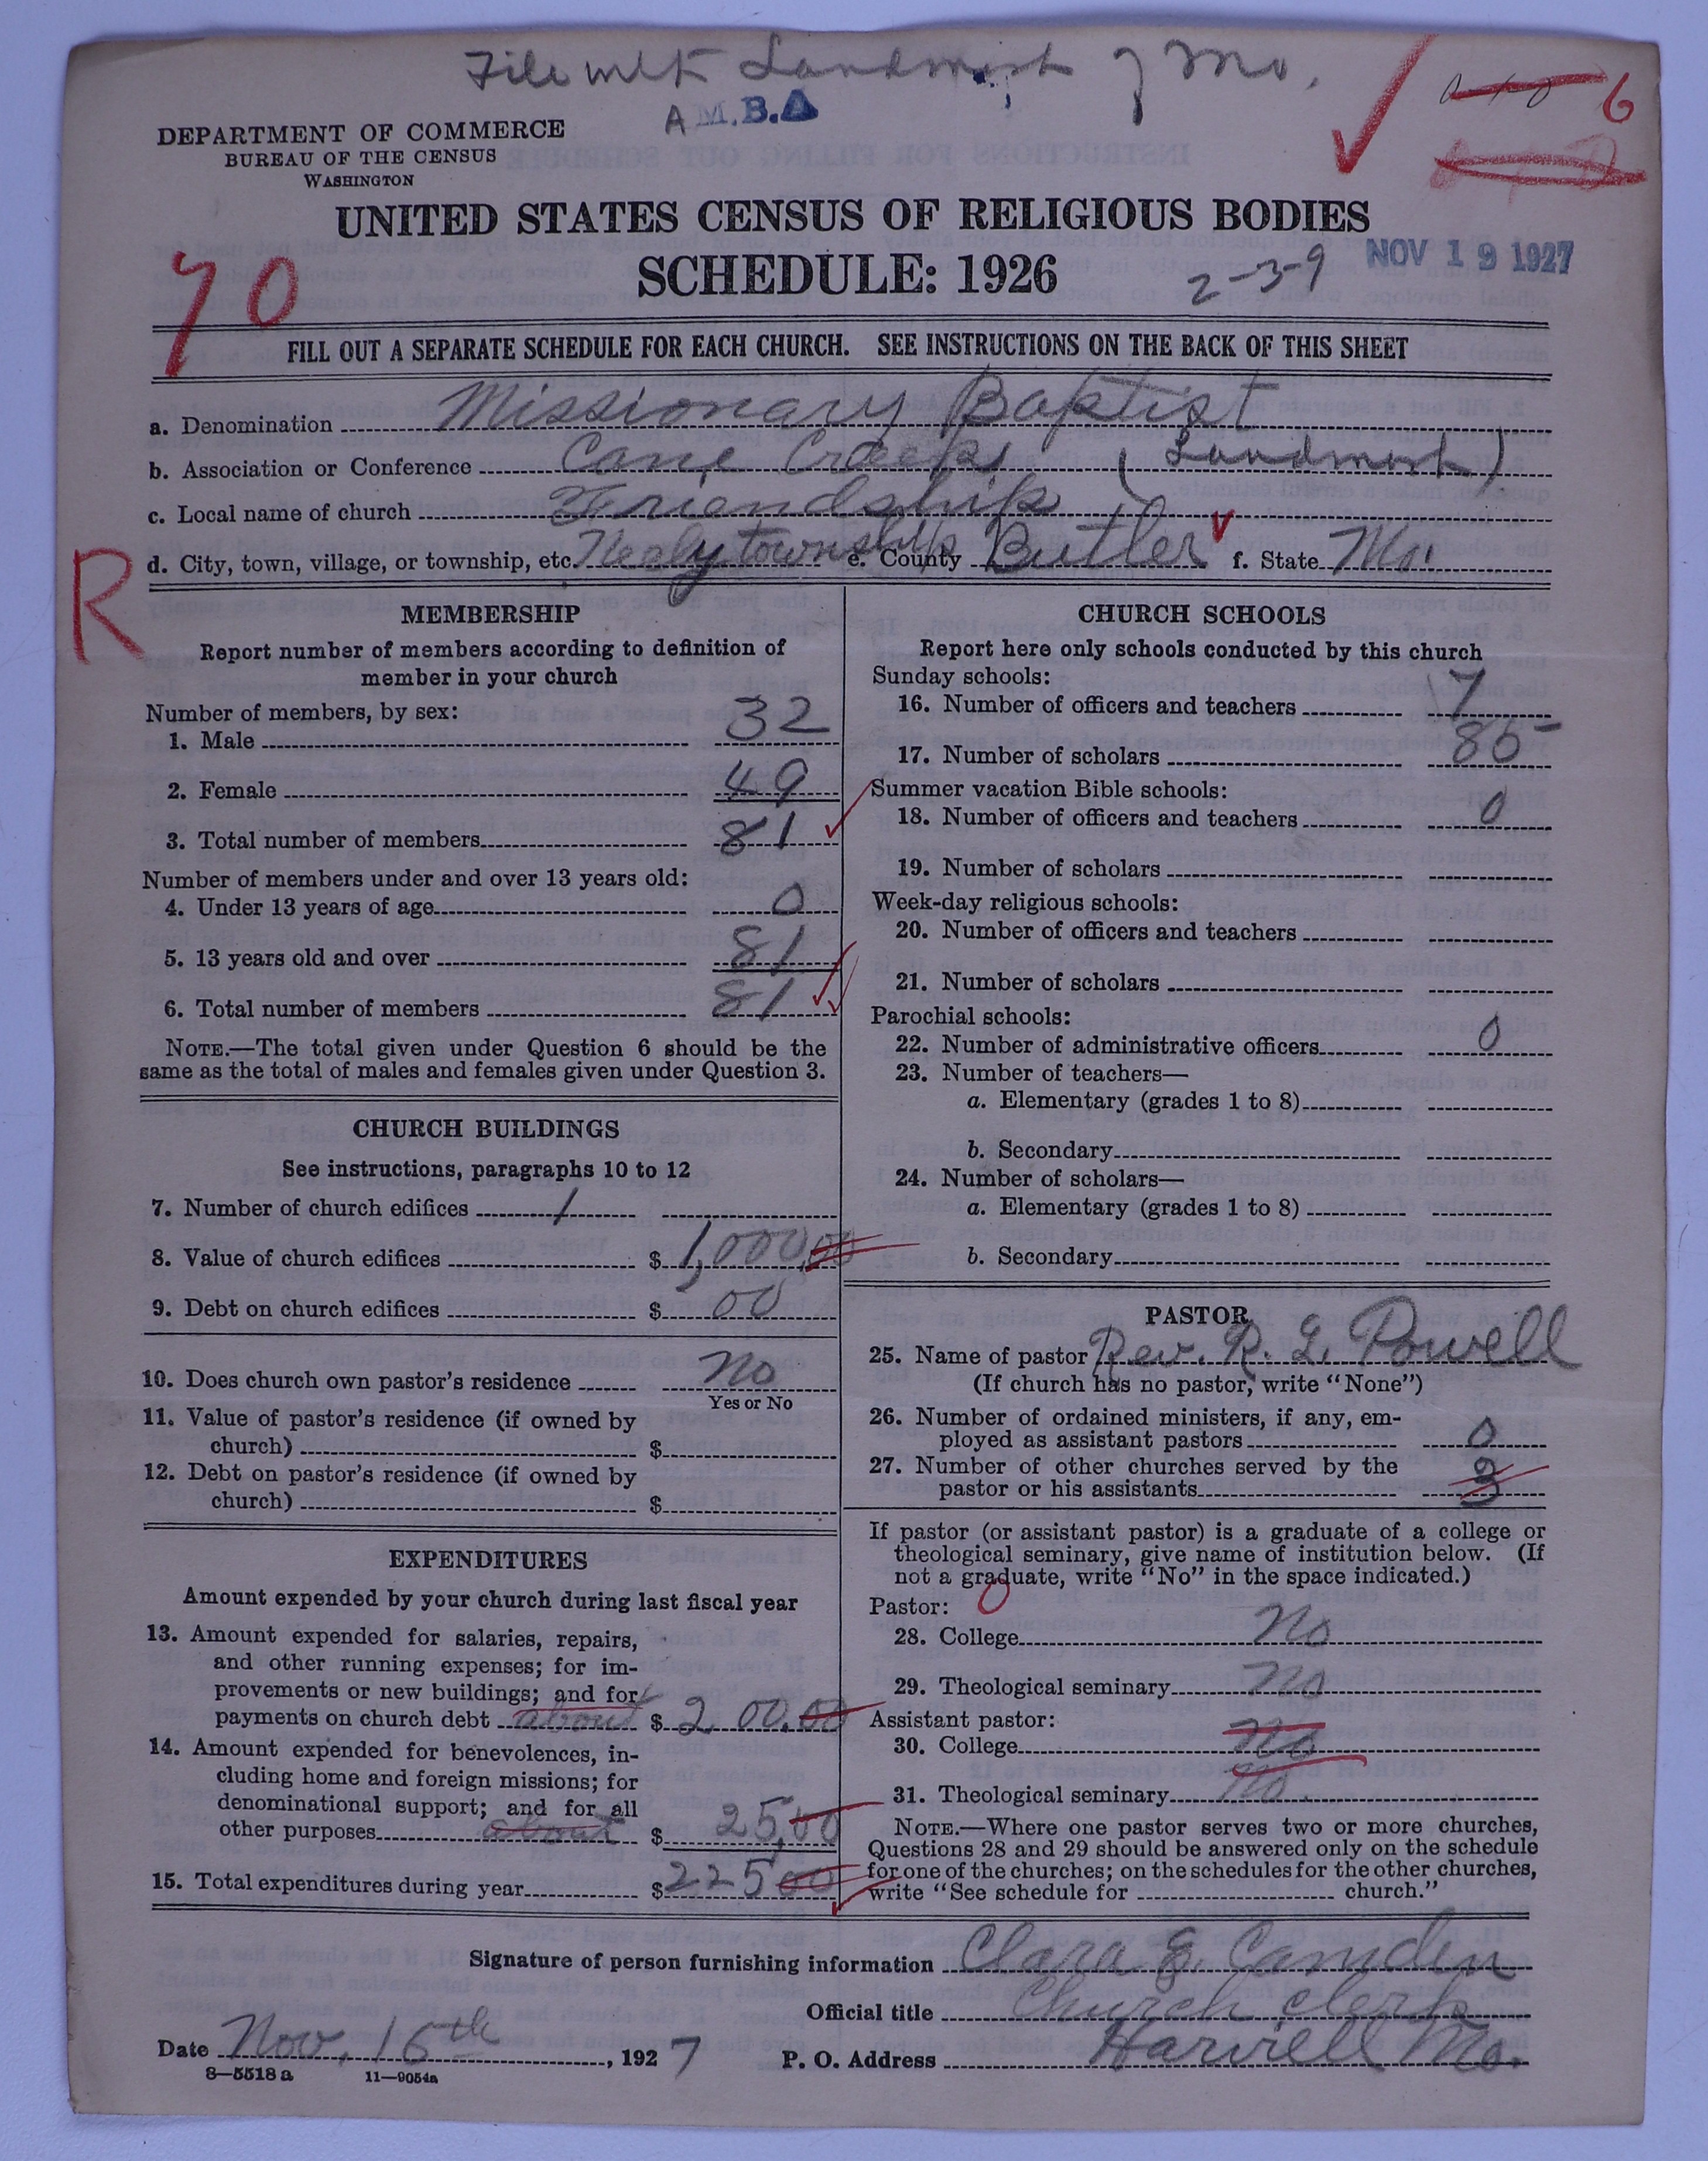 File with Landmark of Mo.
A M.B.A
6
DEPARTMENT OF COMMERCE
BUREAU OF THE CENSUS
WASHINGTON
UNITED STATES CENSUS OF RELIGIOUS BODIES
SCHEDULE: 1926
2-3-9
NOV 19 1927
70
FILL OUT A SEPARATE SCHEDULE FOR EACH CHURCH. SEE INSTRUCTIONS ON THE BACK OF THIS SHEET
a. Denomination Missionary Baptist
b. Association or Conference Cane Creek (Landmark)
c. Local name of church Friendship
d. City, town, village, or township, etc. township e. County Butler f. State Mo.
R
MEMBERSHIP
Report number of members according to definition of
member in your church
Number of members, by sex:
1. Male 32
2. Female 49
3. Total number of members 81
Number of members under and over 13 years old:
4. Under 13 years of age 0
5. 13 years old and over 81
6. Total number of members 81
NOTE.—The total given under Question 6 should be the
same as the total of males and females given under Question 3.
CHURCH BUILDINGS
See instructions, paragraphs 10 to 12
7. Number of church edifices 1
8. Value of church edifices $ 1,000.00
9. Debt on church edifices $ 00
10. Does church own pastor's residence no
Yes or No
11. Value of pastor's residence (if owned by
church) $
12. Debt on pastor's residence (if owned by
church) $
EXPENDITURES
Amount expended by your church during last fiscal year
13. Amount expended for salaries, repairs,
and other running expenses; for im-
provements or new buildings; and for
payments on church debt about $ 200.00
14. Amount expended for benevolences, in-
cluding home and foreign missions; for
denominational support; and for all
other purposes about $ 25,00
15. Total expenditures during year $ 225 00
CHURCH SCHOOLS
Report here only schools conducted by this church
Sunday schools:
16. Number of officers and teachers 7
17. Number of scholars 85
Summer vacation Bible schools:
18. Number of officers and teachers 0
19. Number of scholars
Week-day religious schools:
20. Number of officers and teachers
21. Number of scholars
Parochial schools:
22. Number of administrative officers 0
23. Number of teachers—
a. Elementary (grades 1 to 8)
b. Secondary
24. Number of scholars—
a. Elementary (grades 1 to 8)
b. Secondary
PASTOR
25. Name of pastor Rev. R. L. Powell
(If church has no pastor, write "None")
26. Number of ordained ministers, if any, em-
ployed as assistant pastors 0
27. Number of other churches served by the
pastor or his assistants 3
If pastor (or assistant pastor) is a graduate of a college or
theological seminary, give name of institution below. (If
not a graduate, write "No" in the space indicated.)
Pastor: 0
28. College No
29. Theological seminary No
Assistant pastor:
30. College No
31. Theological seminary No.
NOTE.—Where one pastor serves two or more churches,
Questions 28 and 29 should be answered only on the schedule
for one of the churches; on the schedules for the other churches,
write "See schedule for church."
Signature of person furnishing information Clara E. Camden
Official title Church clerk
Date Nov. 16th, 1927 P. O. Address Harviell Mo.
8—5518 a 11—9054a